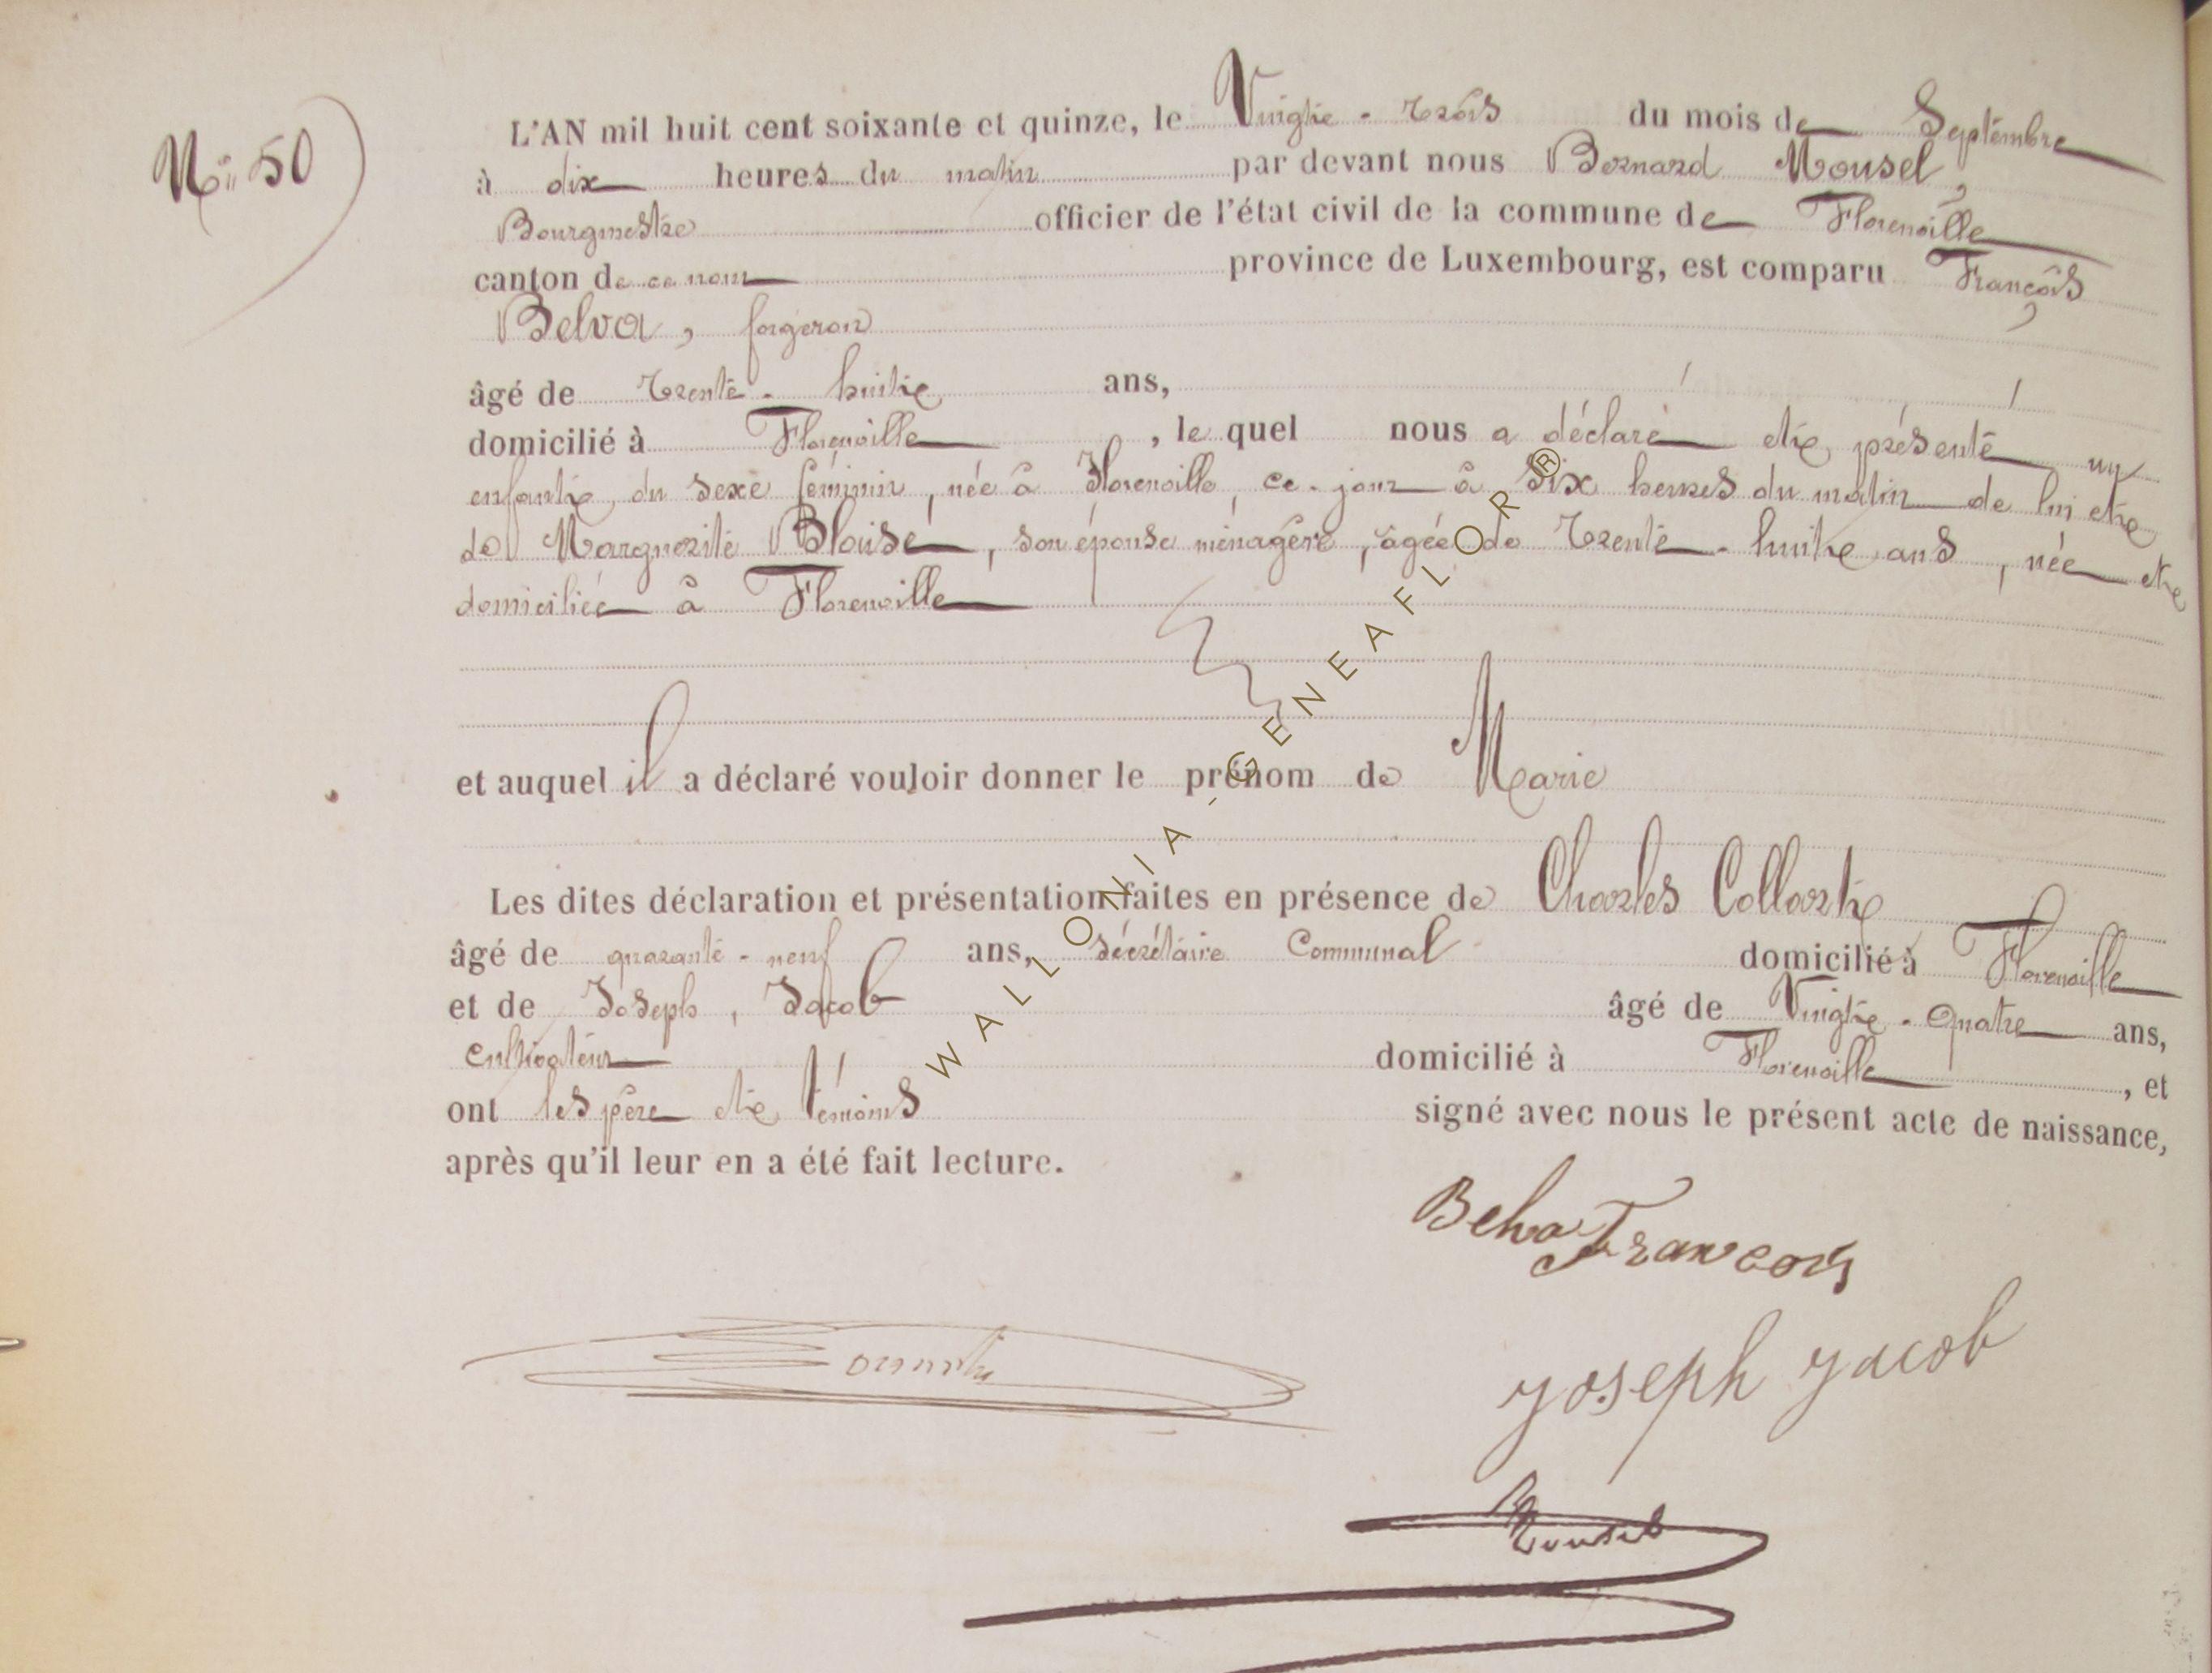 N° 50
L'AN mil huit cent soixante et quinze, le Vingt-trois du mois de Septembre
à dix heures du matin par devant nous Bernard Mousel,
Bourgmestre officier de l'état civil de la commune de Florenville
canton de ce nom province de Luxembourg, est comparu François
Belva, forgeron
âgé de trente-huit ans,
domicilié à Florenville, le quel nous a déclaré et présenté un
enfant du sexe féminin, née à Florenville, ce jour à Six heures du matin de lui et
de Marguerite Blaise, son épouse ménagère, âgée de trente-huit ans, née et
domiciliée à Florenville
et auquel il a déclaré vouloir donner le prénom de Marie
Les dites déclaration et présentation faites en présence de Charles Collart
âgé de quarante-neuf ans, secrétaire Communal domicilié à Florenville
et de Joseph, Jacob âgé de Vingt-quatre ans,
cultivateur domicilié à Florenville, et
ont les père et témoins signé avec nous le présent acte de naissance,
après qu'il leur en a été fait lecture.
Belva François
Joseph Jacob
Mousel
WALLONIA-GENEAFLOR®